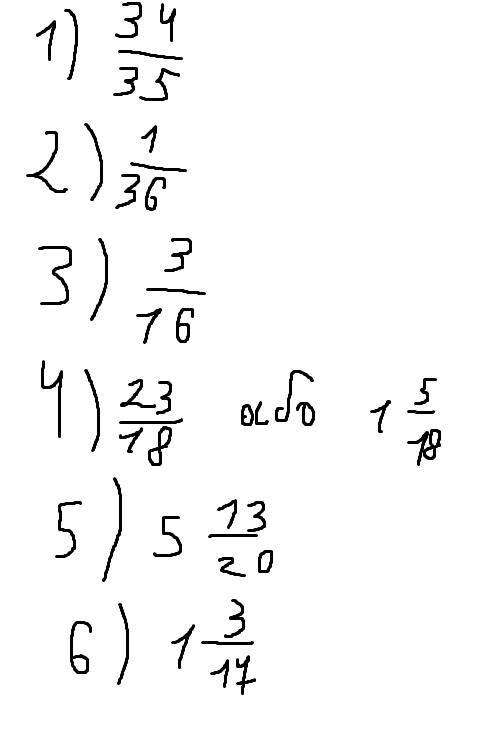 1) 34/35
2) 1/36
3) 3/16
4) 23/18 або 1 5/18
5) 5 13/20
6) 1 3/17